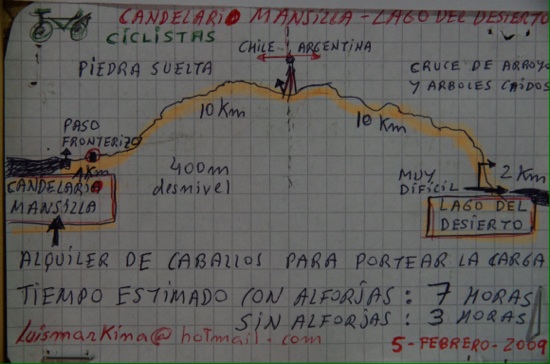 CANDELARIO MANSILLA - LAGO DEL DESIERTO
CICLISTAS
CHILE ARGENTINA
PIEDRA SUELTA
CRUCE DE ARROYO
Y ARBOLES CAIDOS
10 Km
10 Km
PASO
FRONTERIZO
1 Km
400m
desnivel
MUY
DIFICIL
2 Km
CANDELARIO
MANSILLA
LAGO DEL
DESIERTO
ALQUILER DE CABALLOS PARA PORTEAR LA CARGA
TIEMPO ESTIMADO CON ALFORJAS: 7 HORAS
SIN ALFORJAS: 3 HORAS
luismarkina@hotmail.com
5-FEBRERO-2009